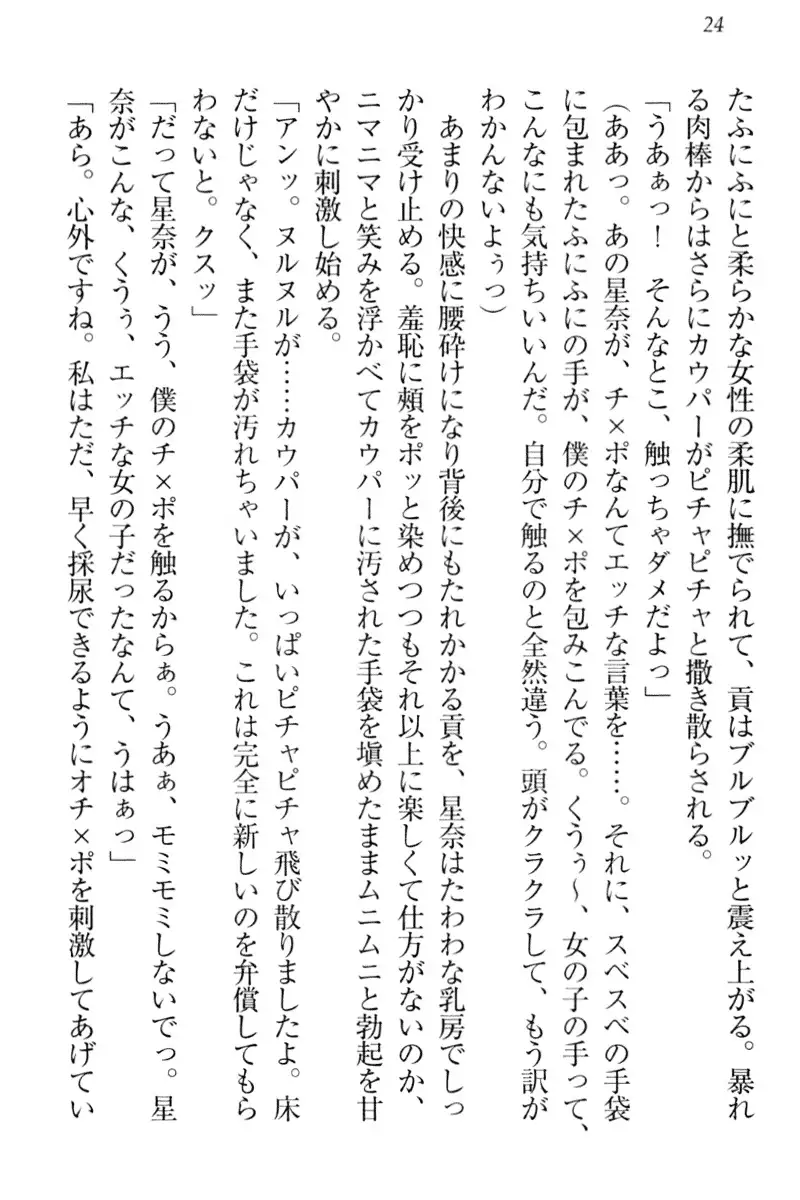 24
たふにふにと柔らかな女性の柔肌に撫でられて、貢はブルブルッと震え上がる。暴れ
る肉棒からはさらにカウパーがピチャピチャと撒き散らされる。
「うあぁっ！　そんなとこ、触っちゃダメだよっ」
（ああっ。あの星奈が、チ×ポなんてエッチな言葉を……。それに、スベスベの手袋
に包まれたふにふにの手が、僕のチ×ポを包みこんでる。くうぅ～、女の子の手って、
こんなにも気持ちいいんだ。自分で触るのと全然違う。頭がクラクラして、もう訳が
わかんないよぅっ）
　あまりの快感に腰砕けになり背後にもたれかかる貢を、星奈はたわわな乳房でしっ
かり受け止める。羞恥に頬をポッと染めつつもそれ以上に楽しくて仕方がないのか、
ニマニマと笑みを浮かべてカウパーに汚された手袋を塡めたままムニムニと勃起を甘
やかに刺激し始める。
「アンッ。ヌルヌルが……カウパーが、いっぱいピチャピチャ飛び散りましたよ。床
だけじゃなく、また手袋が汚れちゃいました。これは完全に新しいのを弁償してもら
わないと。クスッ」
「だって星奈が、うう、僕のチ×ポを触るからぁ。うあぁ、モミモミしないでっ。星
奈がこんな、くうぅ、エッチな女の子だったなんて、うはぁっ」
「あら。心外ですね。私はただ、早く採尿できるようにオチ×ポを刺激してあげてい